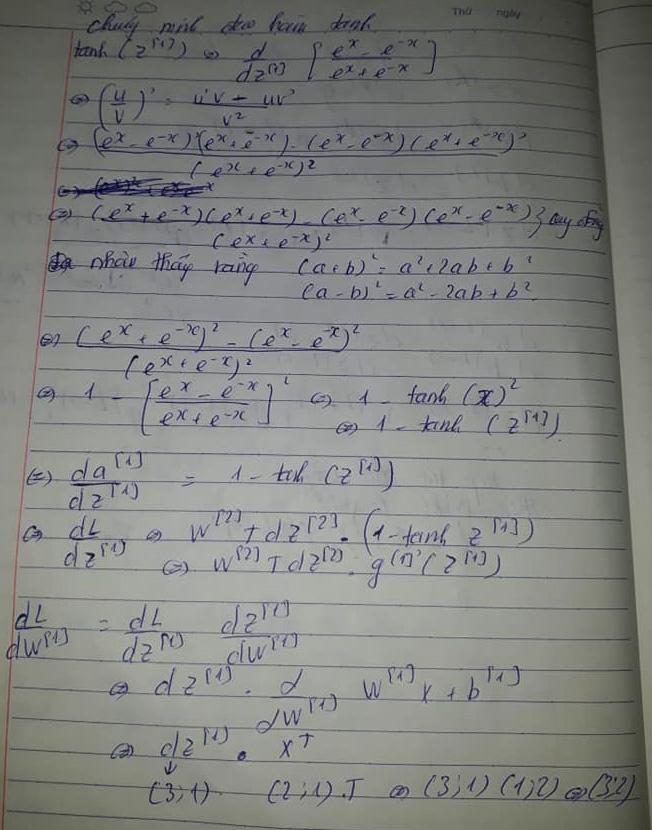 Thứ ngày
chứng minh đạo hàm tanh
tanh (z^[1]) <=> d/dz^[1] [(e^x - e^-x)/(e^x + e^-x)]
<=> (u/v)' = (u'v - uv')/v^2
<=> ((e^x - e^-x)'(e^x + e^-x) - (e^x - e^-x)(e^x + e^-x)')/(e^x + e^-x)^2
<=> ((e^x + e^-x)(e^x + e^-x) - (e^x - e^-x)(e^x - e^-x))/(e^x + e^-x)^2 }
nhận thấy rằng (a+b)^2 = a^2 + 2ab + b^2
(a-b)^2 = a^2 - 2ab + b^2
<=> ((e^x + e^-x)^2 - (e^x - e^-x)^2)/(e^x + e^-x)^2
<=> 1 - [(e^x - e^-x)/(e^x + e^-x)]^2 <=> 1 - tanh (x)^2
<=> 1 - tanh (z^[1])
<=> da^[1]/dz^[1] = 1 - tah (z^[1])
<=> dL/dz^[1] <=> W^[2]T dz^[2] . (1 - tanh z^[1])
<=> W^[2]T dz^[2] . g^[1]'(z^[1])
dL/dW^[1] = dL/dz^[1] dz^[1]/dW^[1]
<=> dz^[1] . d/dW^[1] W^[1] x + b^[1]
<=> dz^[1] . x^T
(3;1) (2;1).T <=> (3;1) (1;2) <=> (3;2)